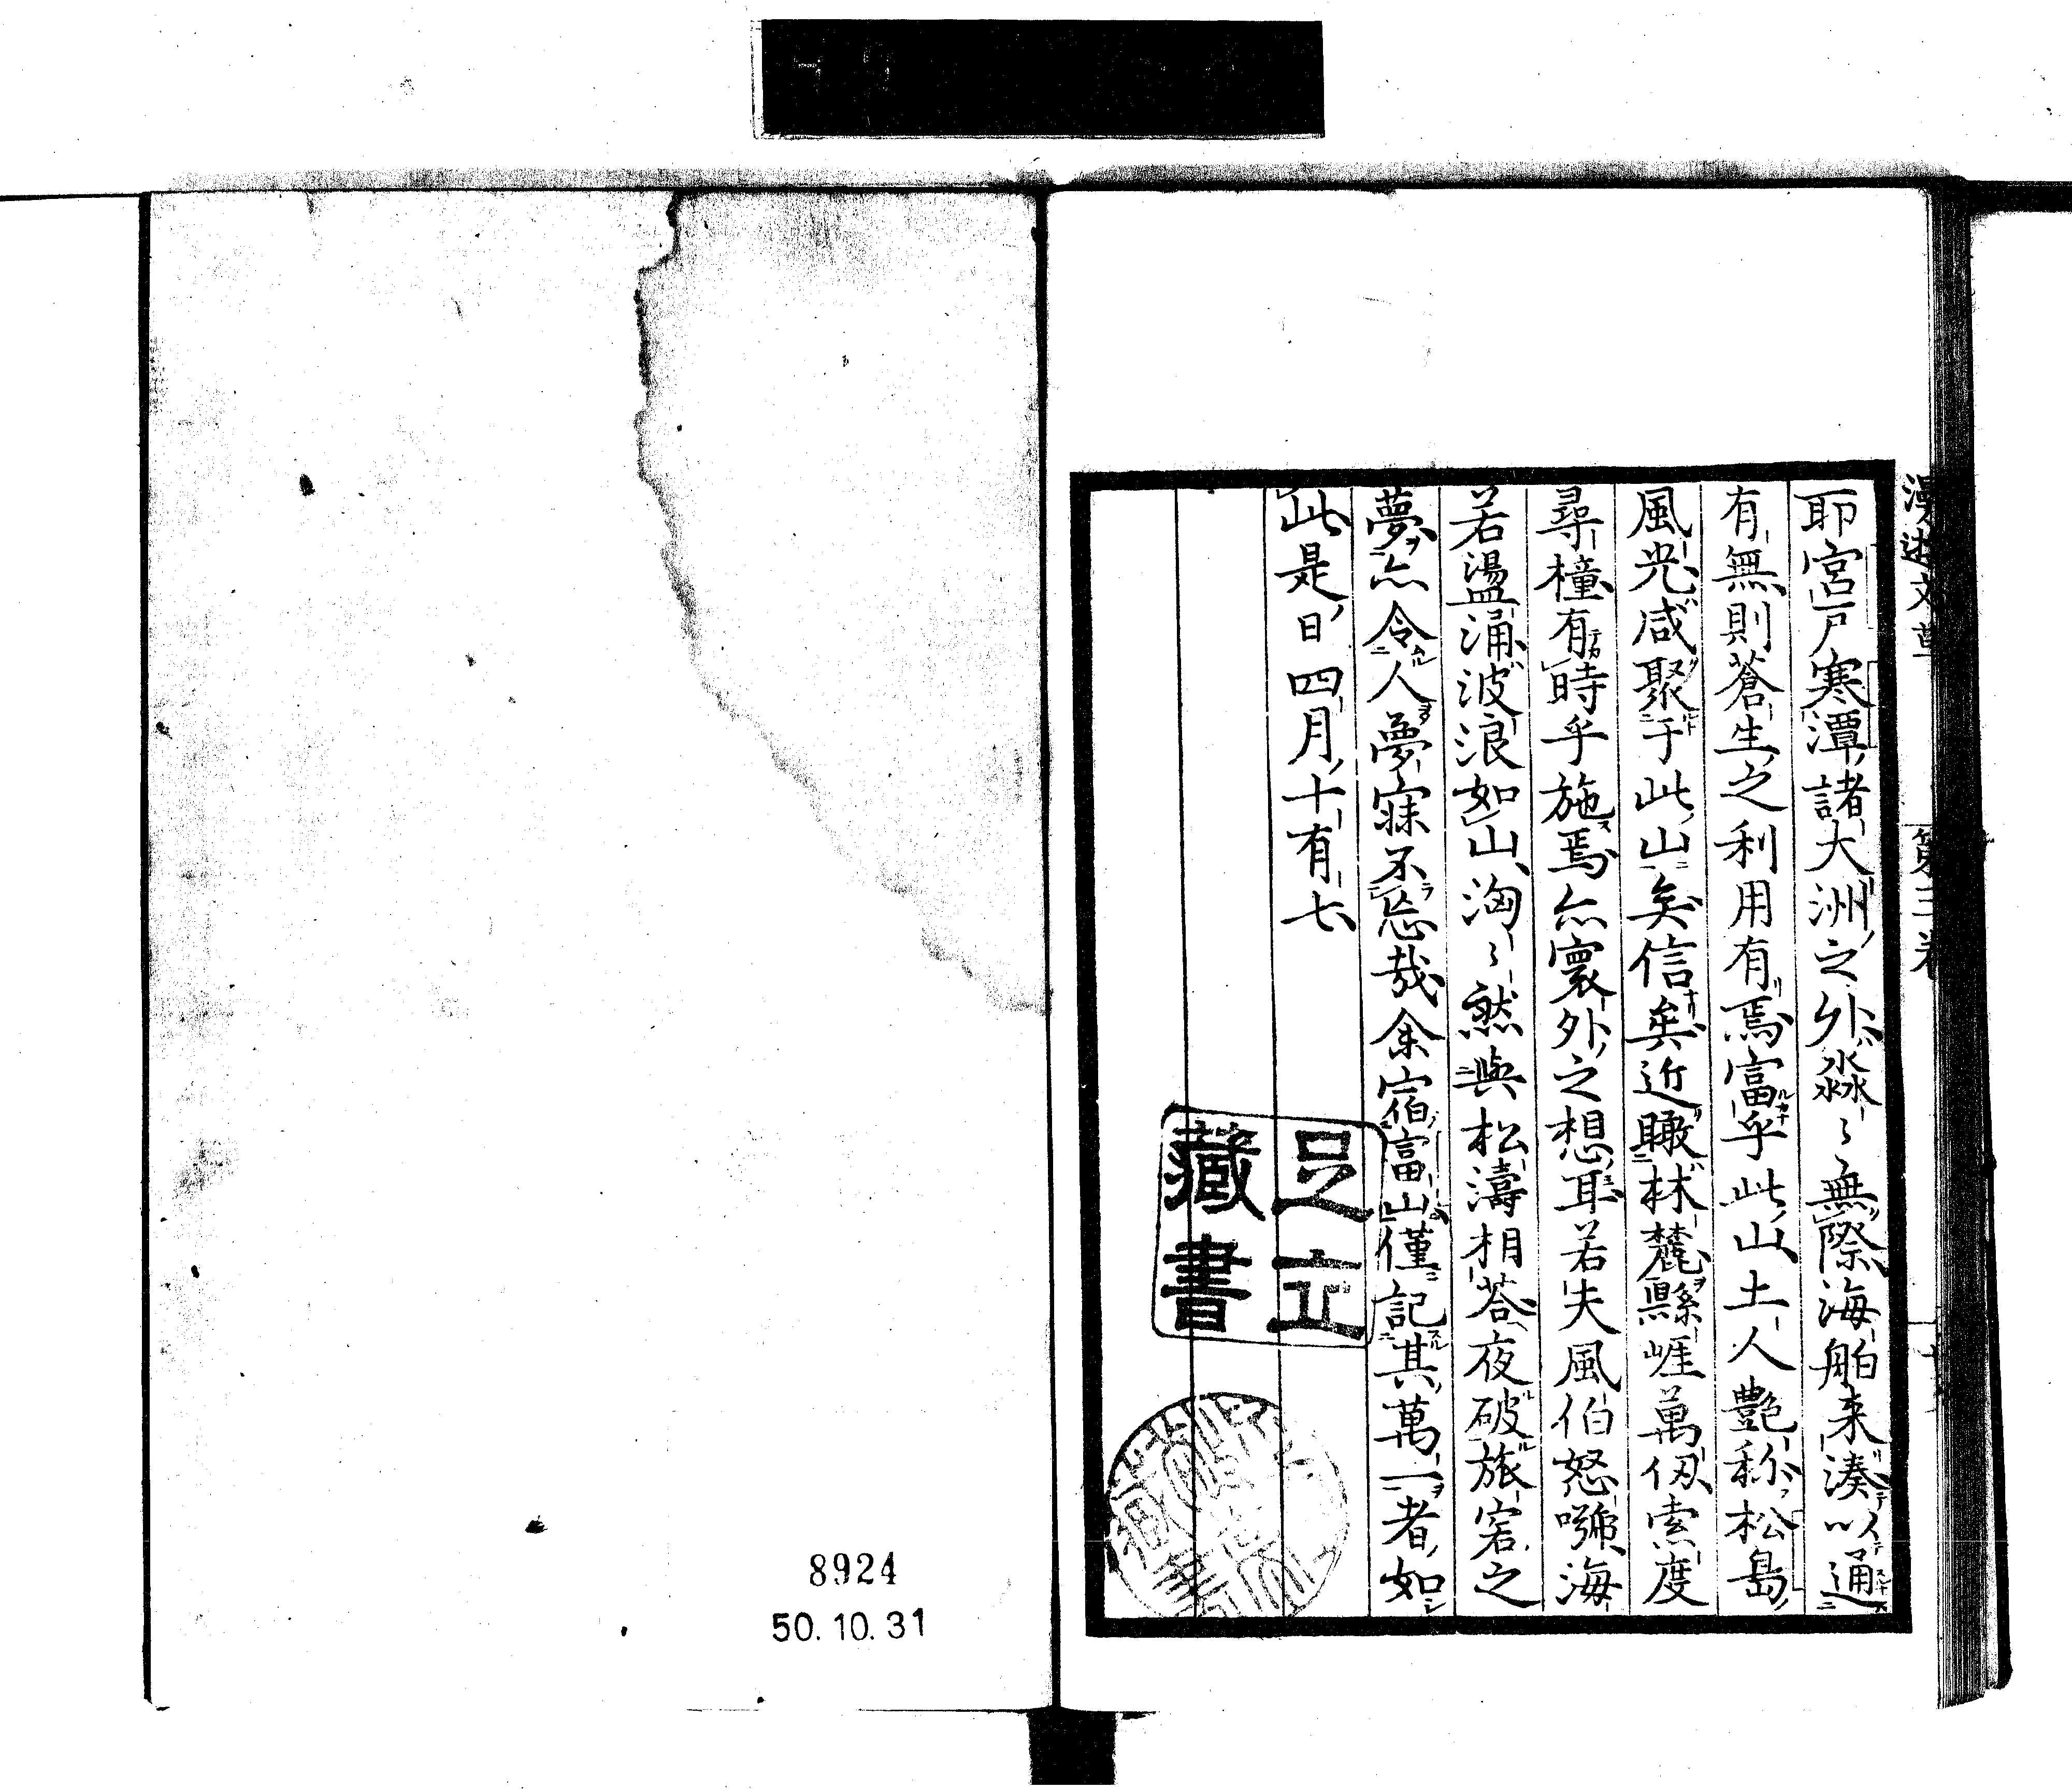 耶宮戸寒潭諸大洲之外淼〻無際海舶来湊以通
有無則蒼生之利用有焉富乎此山土人艶称松島
風光咸聚于此山矣信矣近瞰林麓縣崕萬仭索度
尋橦有時乎施焉亦寰外之想耳若夫風伯怒號海
若盪涌波浪如山洶〻然與松濤相荅夜破旅窓之
夢亦令人夢寐不忘哉余宿富山僅記其萬一者如
此是日四月十有七
足立
藏書
8924
50.10.31